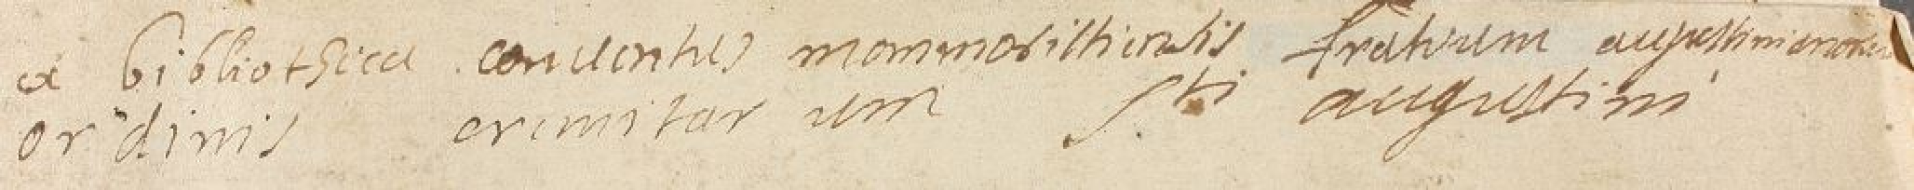 ex bibliotheca conventus monmorillionensis fratrum augustinianorum
ordinis eremitarum Sti augustini